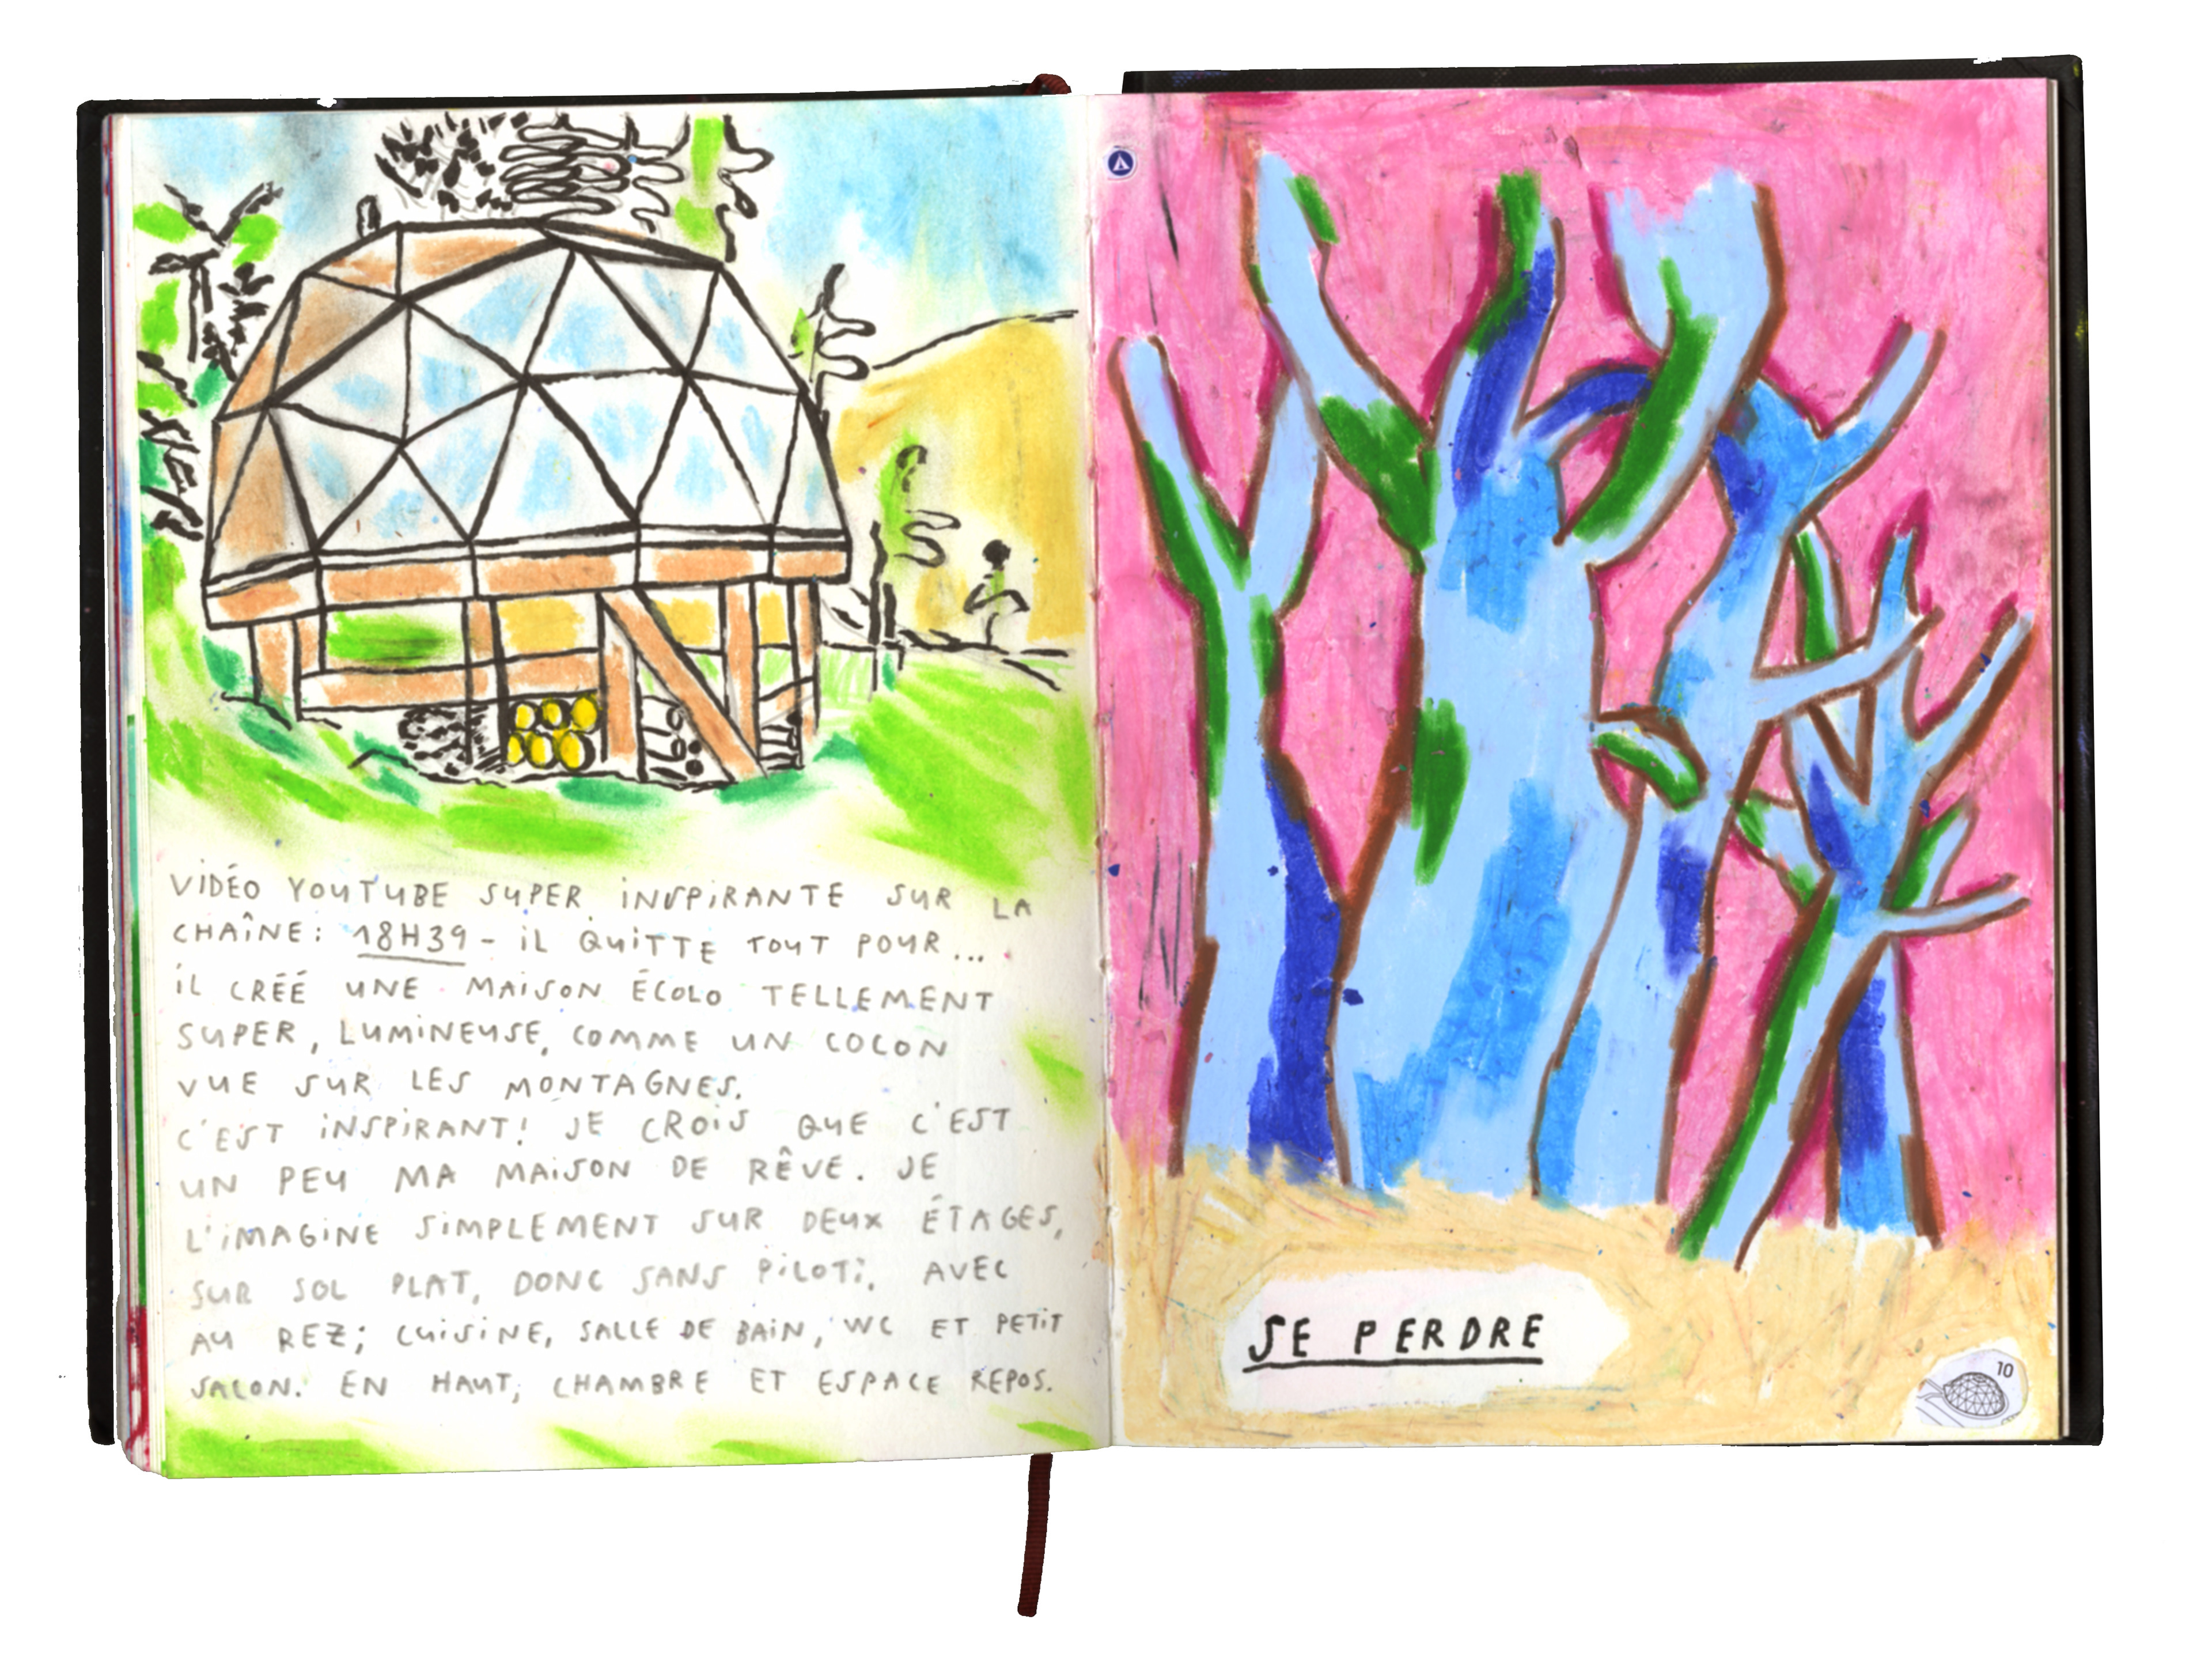 VIDÉO YOUTUBE SUPER INSPIRANTE SUR LA
CHAÎNE: 18H39 - IL QUITTE TOUT POUR...
IL CRÉÉ UNE MAISON ÉCOLO TELLEMENT
SUPER, LUMINEUSE, COMME UN COCON
VUE SUR LES MONTAGNES.
C'EST INSPIRANT! JE CROIS QUE C'EST
UN PEU MA MAISON DE RÊVE. JE
L'IMAGINE SIMPLEMENT SUR DEUX ÉTAGES,
SUR SOL PLAT, DONC SANS PILOTI. AVEC
AU REZ; CUISINE, SALLE DE BAIN, WC ET PETIT
SALON. EN HAUT, CHAMBRE ET ESPACE REPOS.
SE PERDRE
10